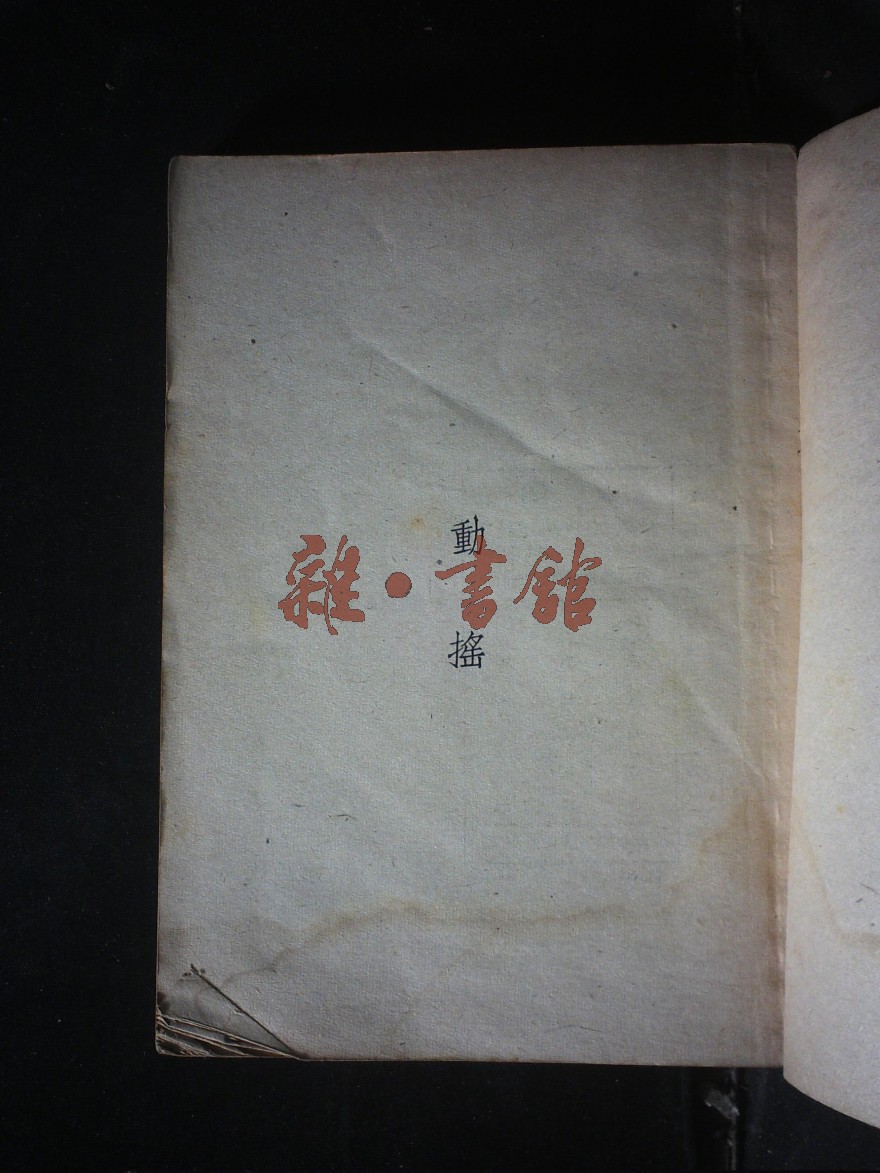 動搖
雜·書館